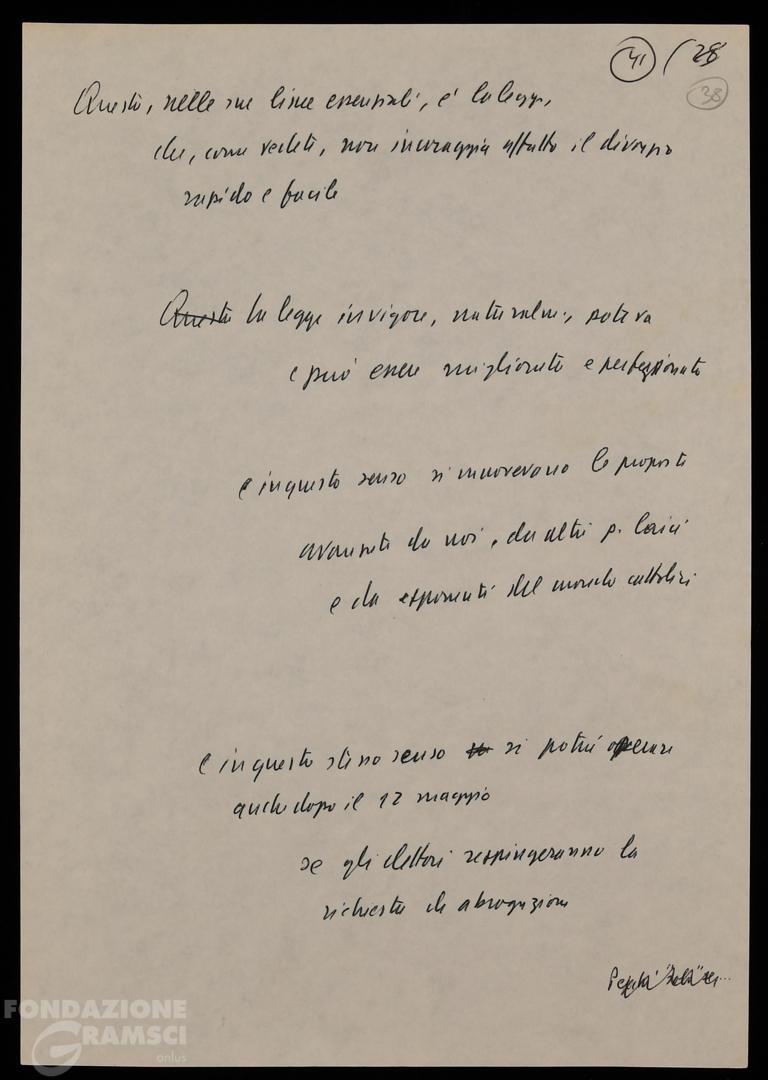 41 / 28
38
Questa, nelle sue linee essenziali, è la legge,
che, come vedete, non incoraggia affatto il divorzio
rapido e facile
Questa la legge in vigore, naturalm., poteva
e può essere migliorata e perfezionata
e in questo senso si muovevano le proposte
avanzate da noi, da altri p. laici
e da esponenti del mondo cattolico
e in questo stesso senso si potrà operare
anche dopo il 12 maggio
se gli elettori respingeranno la
richiesta di abrogazione
FONDAZIONE
GRAMSCI
onlus